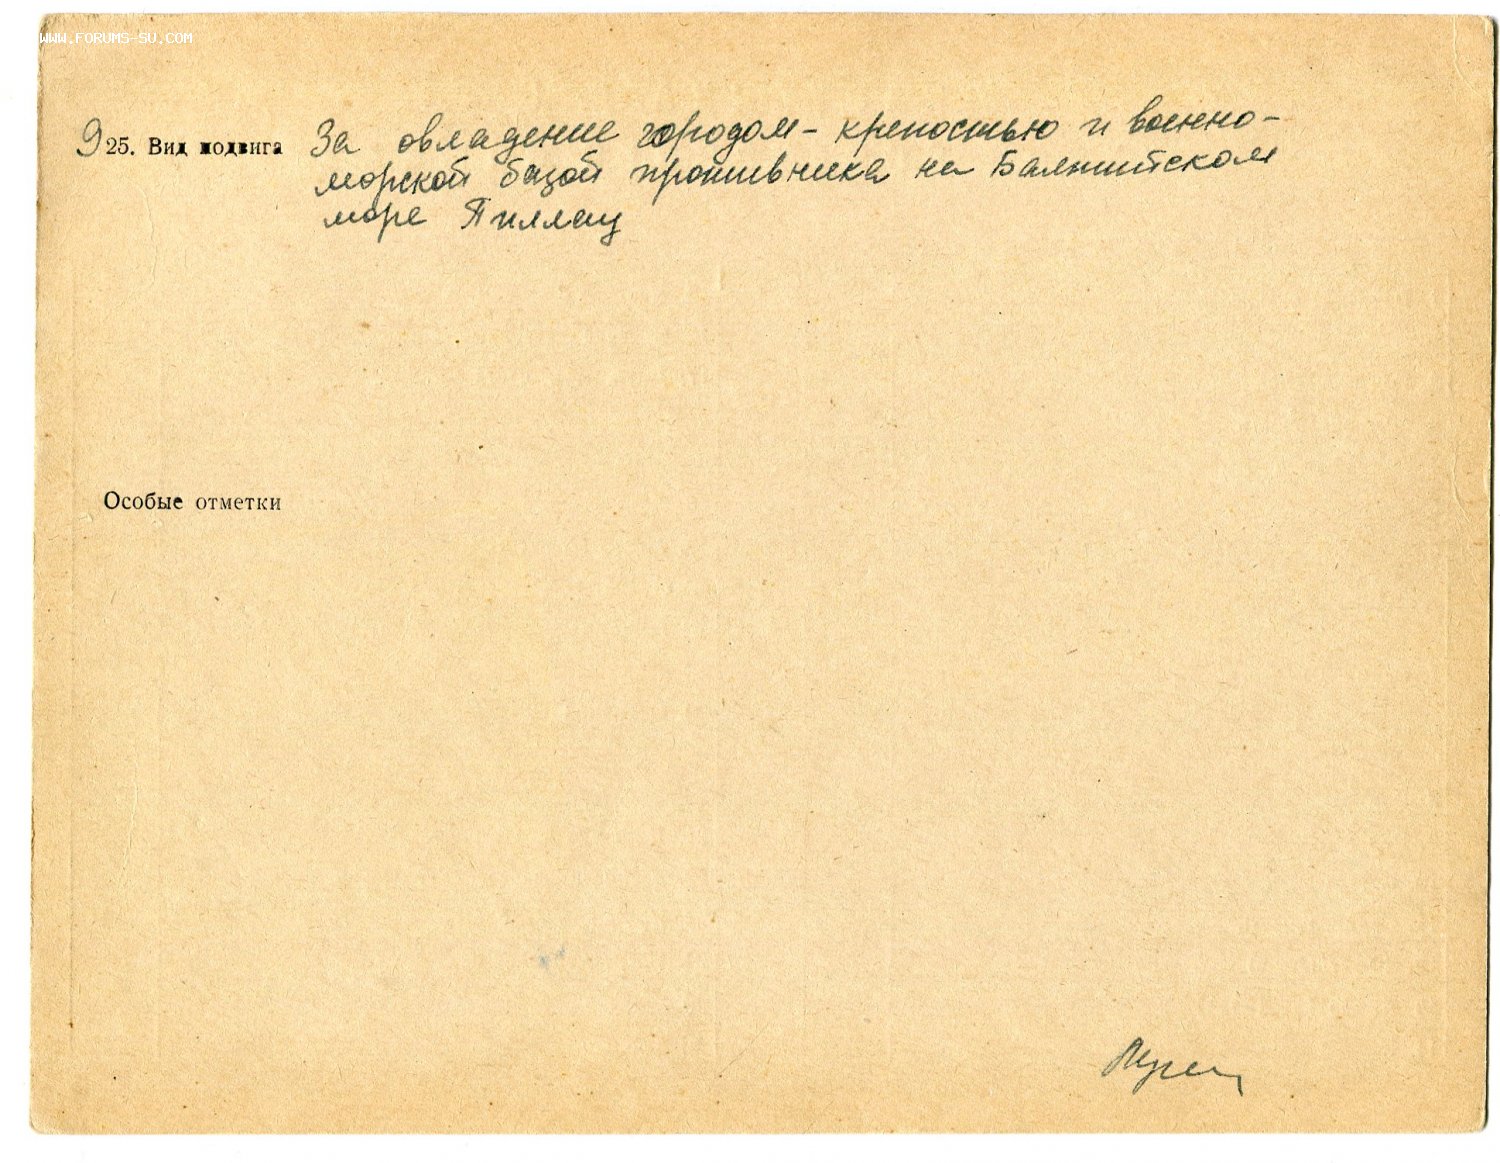 WWW.FORUMS-SU.COM
925. Вид подвига За овладение городом-крепостью и военно-
морской базой противника на Балтийском
море Пиллау
Особые отметки